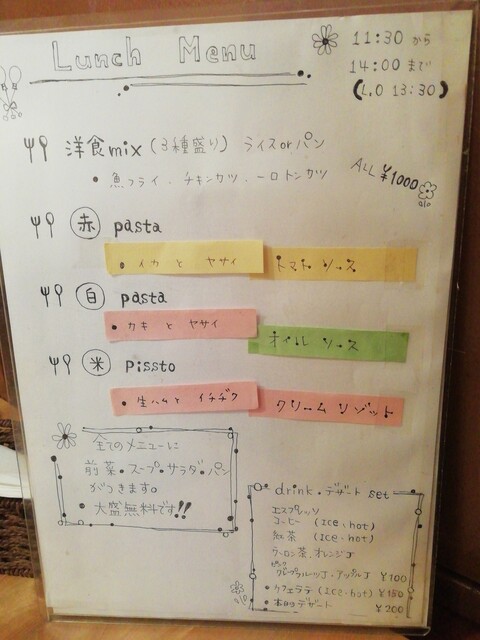 Lunch Menu
11:30 から
14:00 まで
(L.O 13:30)
洋食mix (3種盛り) ライスorパン
• 魚フライ、チキンカツ、一口トンカツ
ALL ¥1000
赤 pasta
• イカ と ヤサイ トマト ソース
白 pasta
• カキ と ヤサイ オイル ソース
米 Pissto
• 生ハムと イチヂク クリーム リゾット
全てのメニューに
前菜・スープ・サラダ・パン
がつきます。
• 大盛無料です!!
drink・デザート set
エスプレッソ
コーヒー (Ice、hot)
紅茶 (Ice、hot)
ウーロン茶、オレンジJ
ピンクグレープフルーツJ・アップルJ ¥100
• カフェラテ (Ice・hot) ¥150
• 本日デザート ¥200